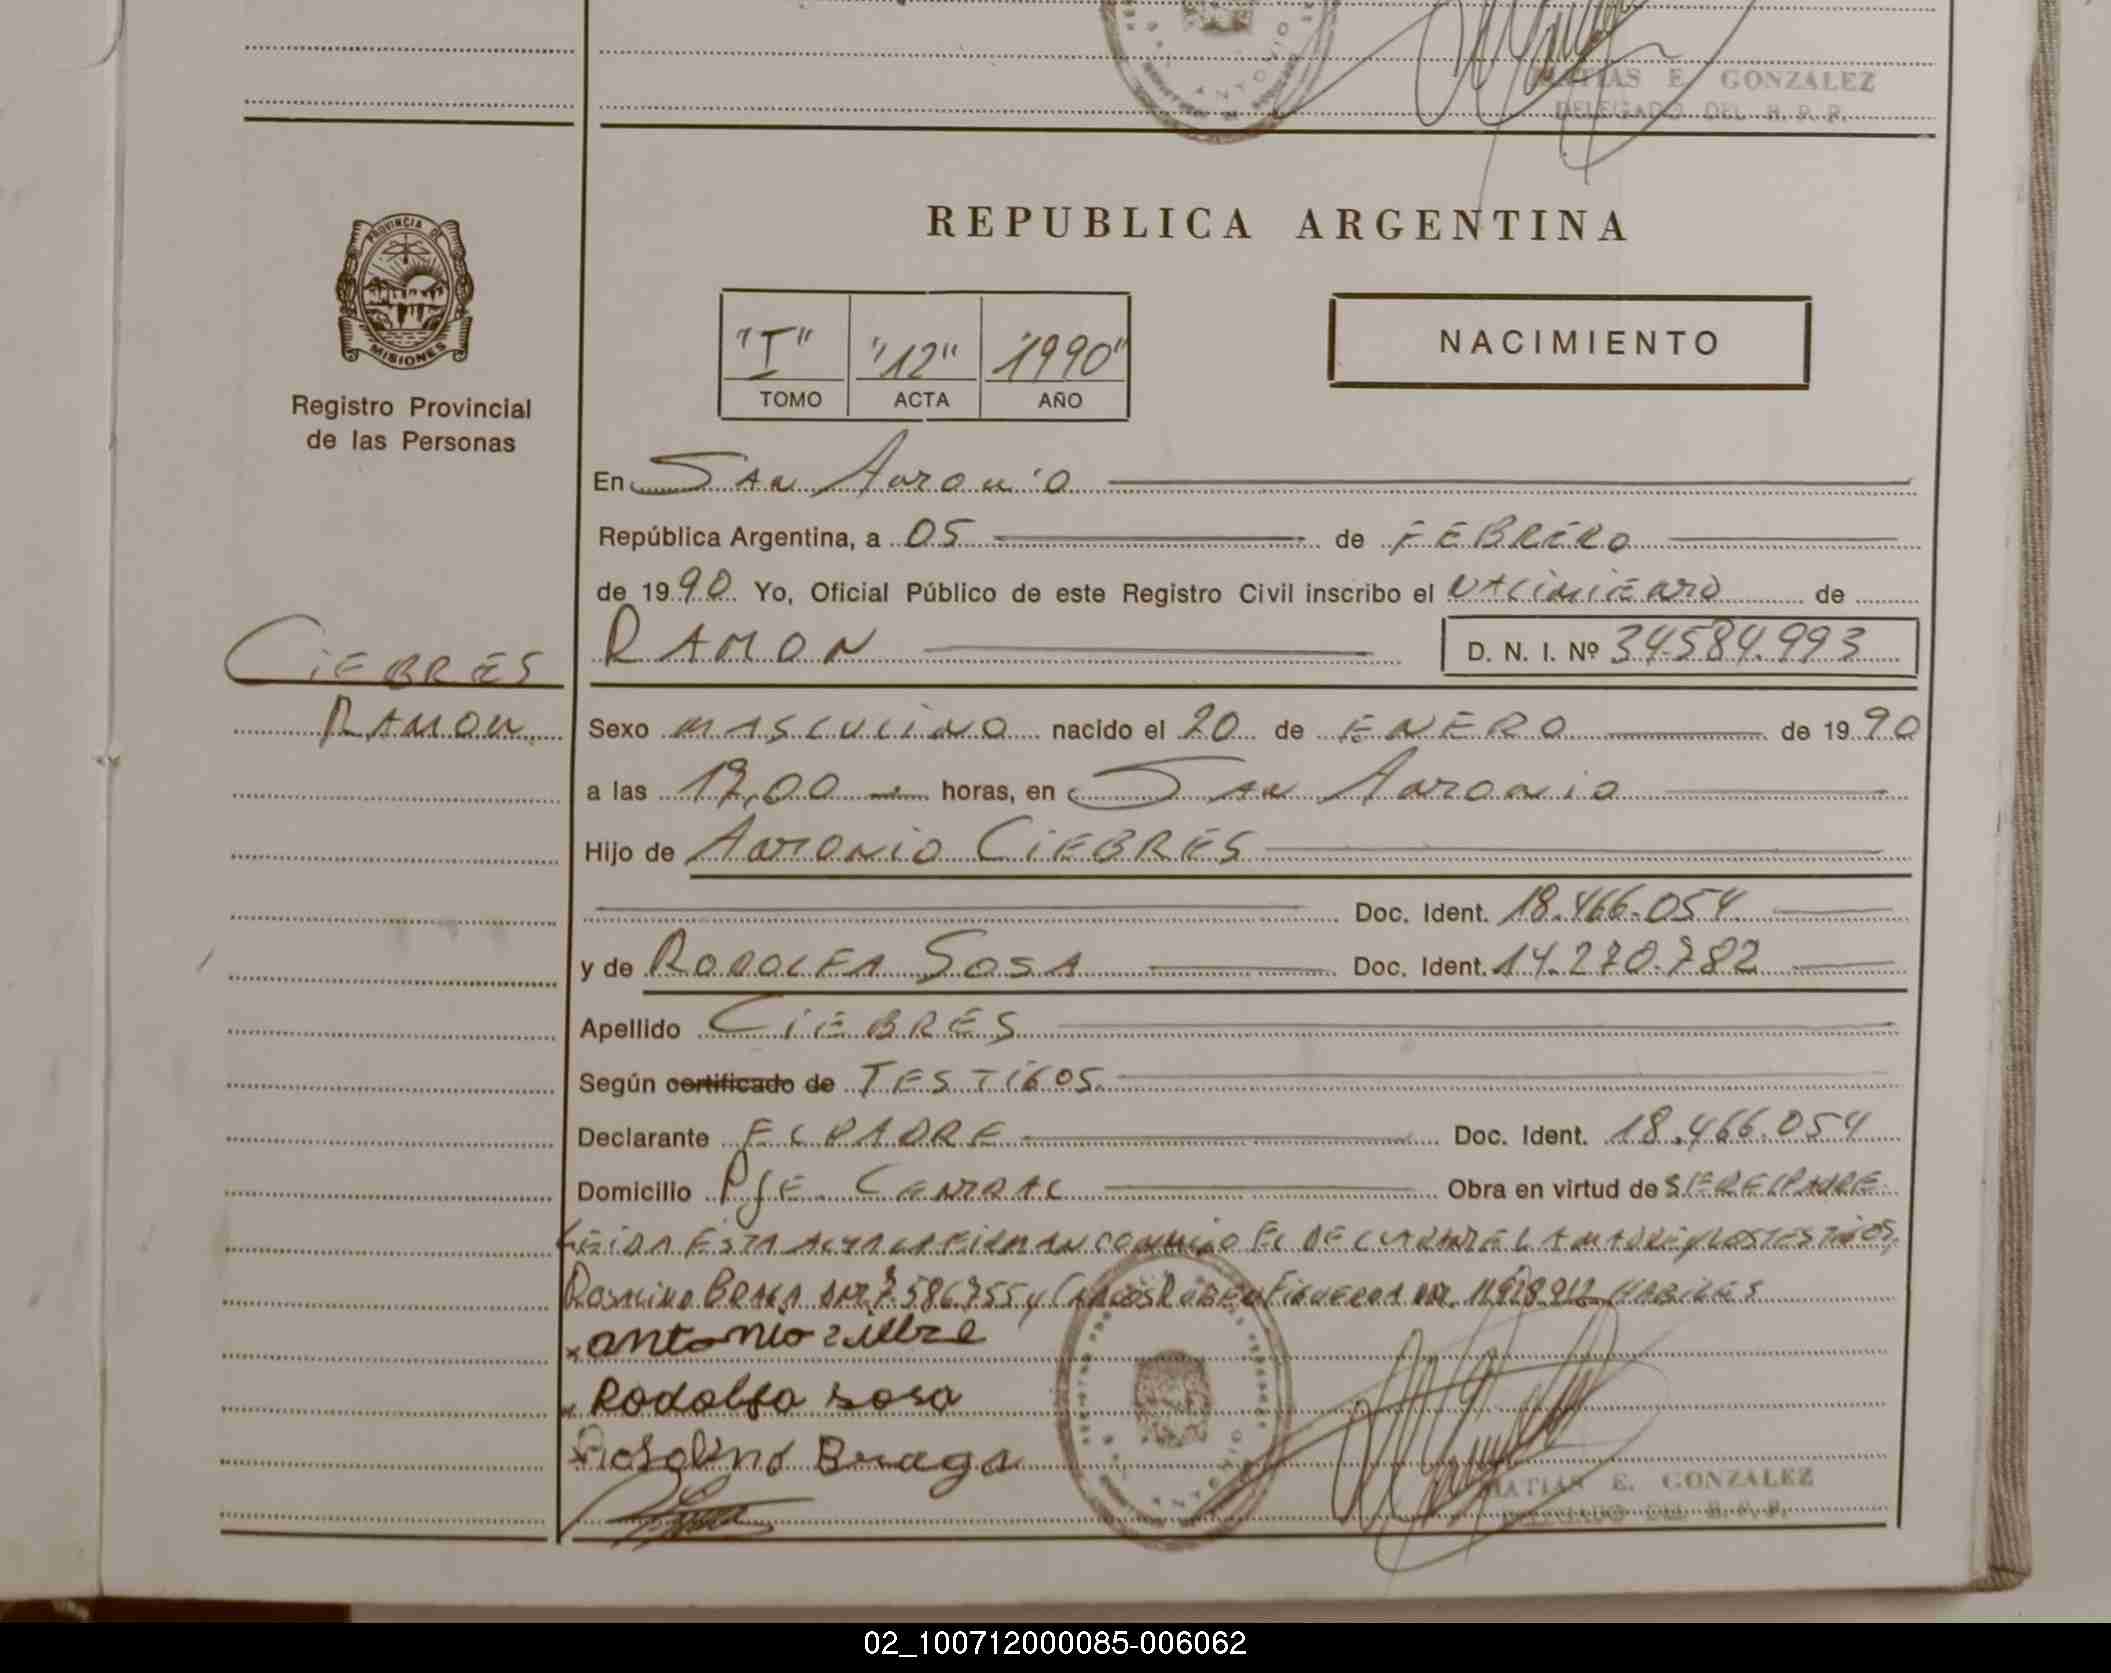 MATIAS E. GONZALEZ
DELEGADO DEL R. P. P.
PROVINCIA DE
MISIONES
Registro Provincial
de las Personas
REPUBLICA ARGENTINA
"I" "12" "1990"
TOMO ACTA AÑO
NACIMIENTO
En San Antonio
República Argentina, a 05 de FEBRERO
de 1990 Yo, Oficial Público de este Registro Civil inscribo el NACIMIENTO de
CIEBRES
RAMON
RAMON D. N. I. Nº 34.584.993
Sexo MASCULINO nacido el 20 de ENERO de 1990
a las 17,00 horas, en San Antonio
Hijo de Antonio CIEBRES
Doc. Ident. 18.466.054
y de RODOLFA SOSA Doc. Ident. 14.270.782
Apellido CIEBRES
Según certificado de TESTIGOS
Declarante EL PADRE Doc. Ident. 18.466.054
Domicilio PJE. CENTRAL Obra en virtud de SER EL PADRE
LEIDA ESTA ACTA LA FIRMAN CONMIGO EL DECLARANTE LA MADRE Y LOS TESTIGOS,
ROSALINO BRAGA DNI 7.586.755 y CARLOS RUBEN FIGUEROA DNI. HABILES
x antonio
Rodolfa sosa
Rosalino Braga
SAN ANTONIO
MATIAS E. GONZALEZ
DELEGADO DEL R. P. P.
02_100712000085-006062